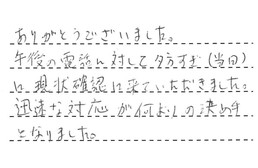 ありがとうございました。
午後の電話に対して夕方すぎ(当日)
に現状確認に来ていただきました。
迅速な対応が何よりの決め手
となりました。